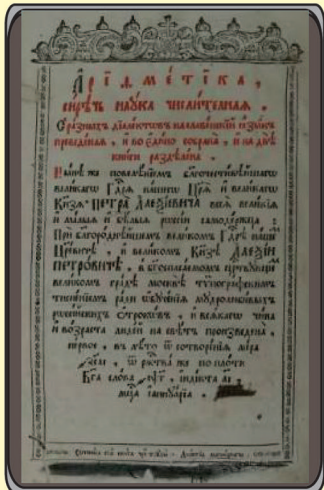 Арїѳметїка,
сирѣчь наука числителная.
С разныхъ дїалектѡвъ на славенскїй ѧзыкъ
преведенаѧ, и во едино собрана, и на двѣ
книги раздѣлена.
Нынѣ же повелѣнїемъ благочестивѣйшагѡ
великагѡ Гдрѧ нашегѡ Цр҃ѧ и великагѡ
Кнѧзѧ ПЕТРА АЛЕѮЇЕВИЧА всеѧ великїѧ
и малыѧ и бѣлыѧ рѡссїи самодержца:
При благороднѣйшемъ великомъ Гдрѣ нашемъ
Цревичѣ, и великомъ Кнѧзѣ АЛЕѮЇИ
ПЕТРОВИЧѢ, в бг҃оспасаемомъ црствующемъ
великомъ градѣ москвѣ типографскимъ
тисненїемъ ради ѡбученїѧ мудролюбивыхъ
рѡссїйскихъ ѻтрокѡвъ, и всѧкагѡ чина
и возраста людей на свѣтъ произведена,
первое, въ лѣто ѿ сотворенїѧ мїра
҂зсаї, ѿ ржтва же по плоти
Бг҃а слова ҂аѱг, индїкта аї
мцѧ їаннуарїа.
Сочинисѧ сїѧ книга чрез труды